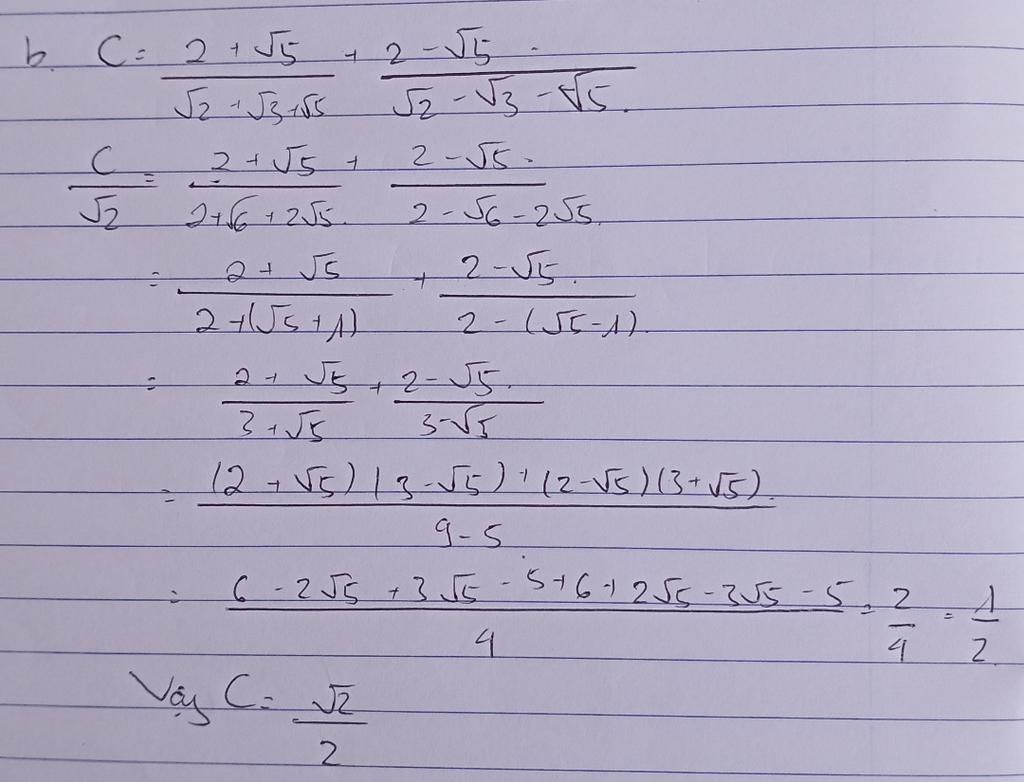 b. C = (2 + √5)/(√2 + √3+√5) + (2 - √5)/(√2 - √3 - √5).
C/√2 = (2 + √5)/(2+√6 + 2√5.) + (2 - √5.)/(2 - √6 - 2√5.)
= (2 + √5)/(2 + (√5 + 1)) + (2 - √5.)/(2 - (√5 - 1).)
= (2 + √5)/(3 + √5) + (2 - √5.)/(3 - √5)
= ((2 + √5)(3 - √5) + (2 - √5)(3 + √5).)/(9 - 5)
= (6 - 2√5 + 3√5 - 5 + 6 + 2√5 - 3√5 - 5)/4 = 2/4 = 1/2
Vậy C = √2/2